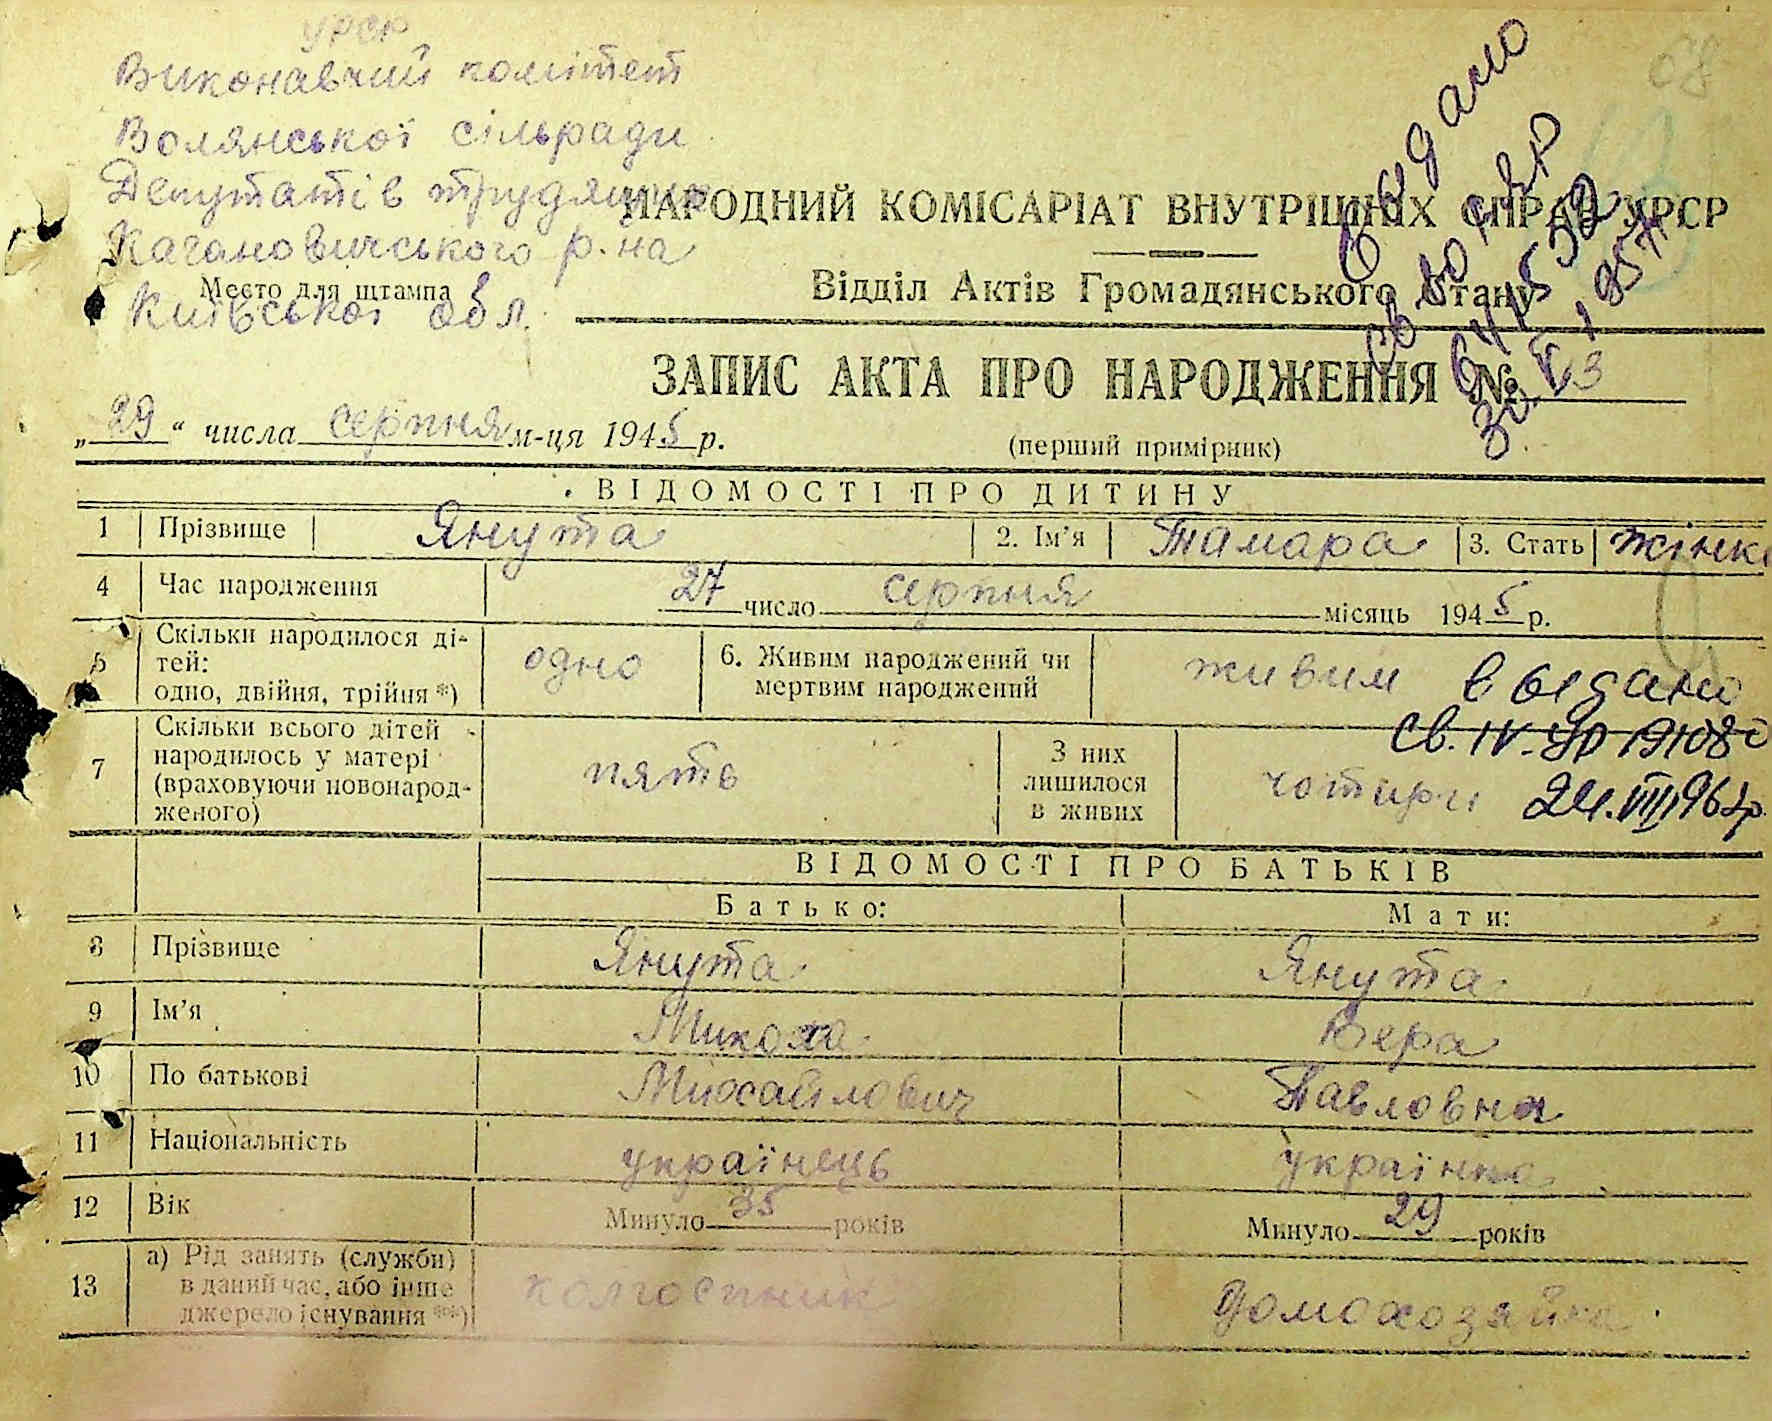 УРСР
Виконавчий комітет
Волянської сільради
Депутатів трудящих
Кагановичського р-на
Место для штампа
Київської обл.
68
НАРОДНИЙ КОМІСАРІАТ ВНУТРІШНІХ СПРАВ УРСР
Відділ Актів Громадянського Стану
Выдано
ЗАПИС АКТА ПРО НАРОДЖЕННЯ №
„29“ числа серпня м-ця 1945 р.
(перший примірник)
ВІДОМОСТІ ПРО ДИТИНУ
1 Прізвище Янута 2. Ім'я Тамара 3. Стать жінк
4 Час народження 27 число серпня місяць 1945 р.
5 Скільки народилося ді-
тей:
одно, двійня, трійня *)
одно
6. Живим народжений чи
мертвим народжений
живим
выдано
св. IV-УР
7 Скільки всього дітей
народилось у матері
(враховуючи новонарод-
женого)
пять
З них
лишилося
в живих
чотири
24.VIII
ВІДОМОСТІ ПРО БАТЬКІВ
Батько: Мати:
8 Прізвище Янута Янута
9 Ім'я Микола Вера
10 По батькові Михайлович Павловна
11 Національність українець українка
12 Вік Минуло 35 років Минуло 29 років
13 а) Рід занять (служби)
в даний час, або інше
джерело існування **)
колгоспник домохозяйка